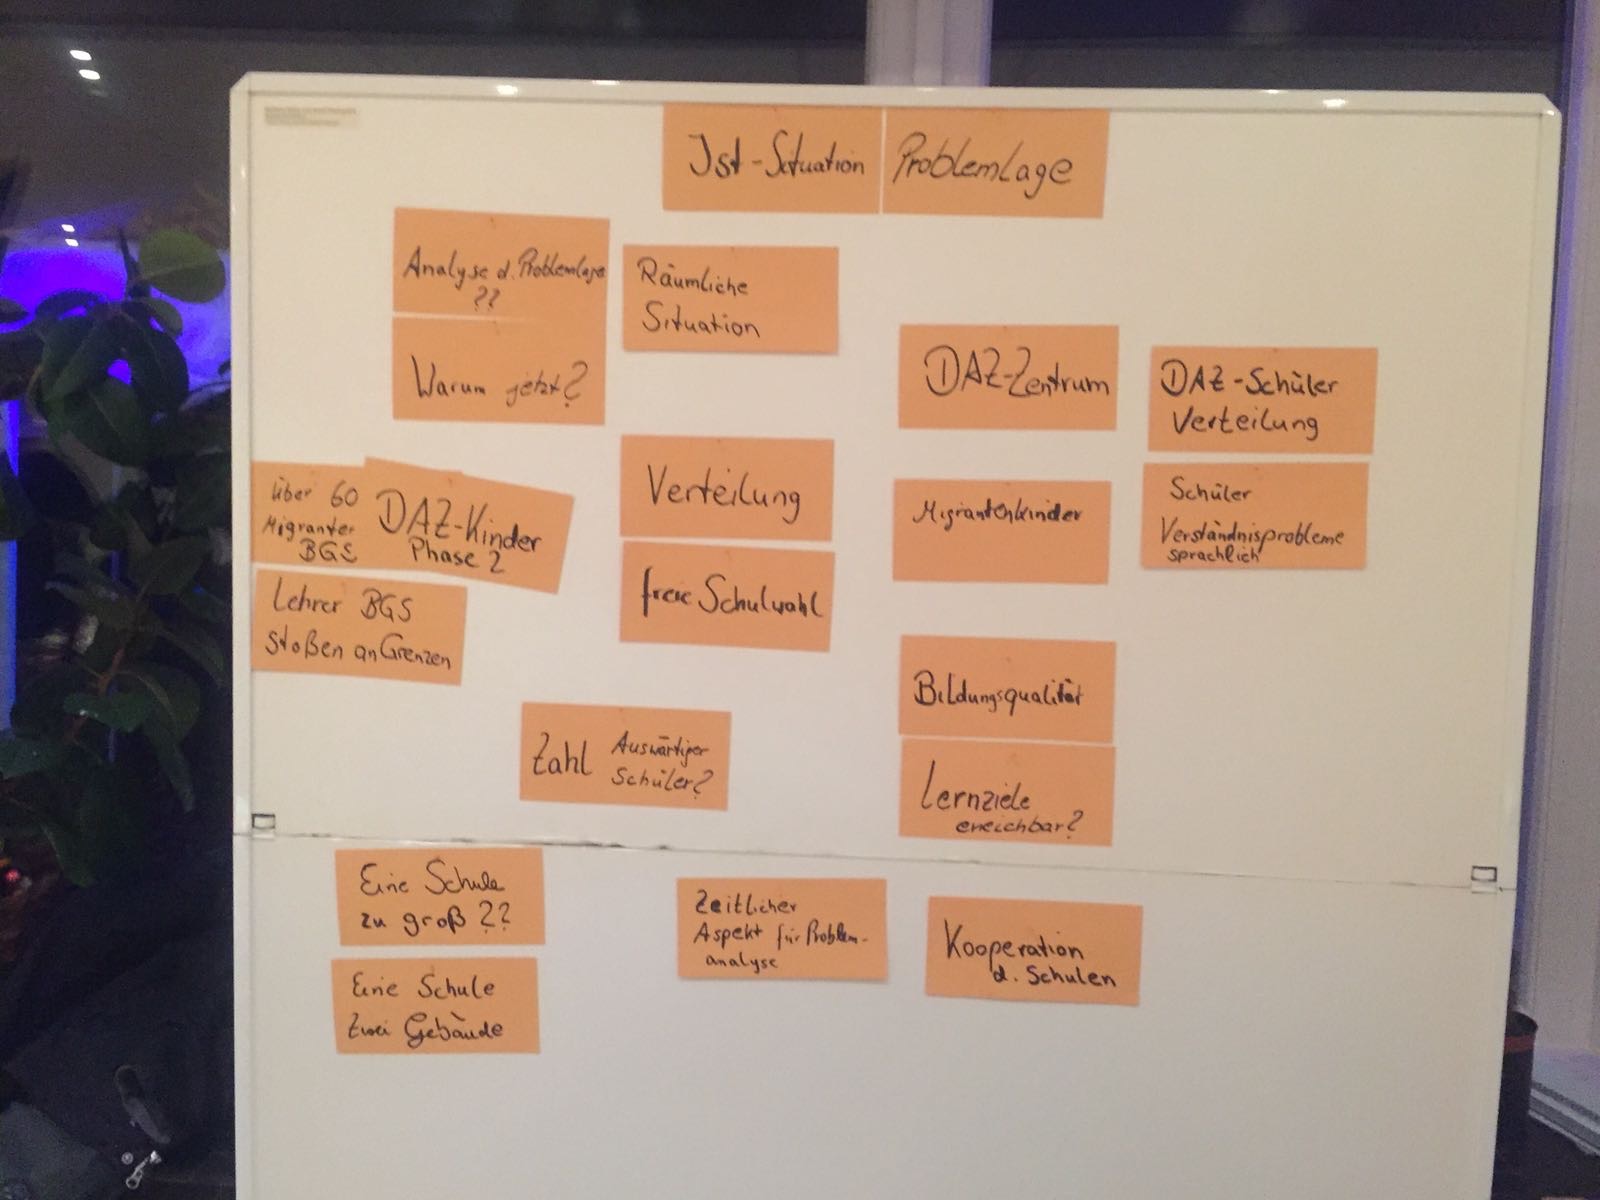 Ist-Situation
Problemlage
Analyse d. Problemlage
??
Warum jetzt?
Räumliche
Situation
DAZ-Zentrum
DAZ-Schüler
Verteilung
über 60
Migranten
BGS
DAZ-Kinder
Phase 2
Lehrer BGS
stoßen an Grenzen
Verteilung
freie Schulwahl
Migrantenkinder
Schüler
Verständnisprobleme
sprachlich
Zahl Auswärtiger
Schüler?
Bildungsqualität
Lernziele
erreichbar?
Eine Schule
zu groß ??
Eine Schule
Zwei Gebäude
Zeitlicher
Aspekt für Problem-
analyse
Kooperation
d. Schulen